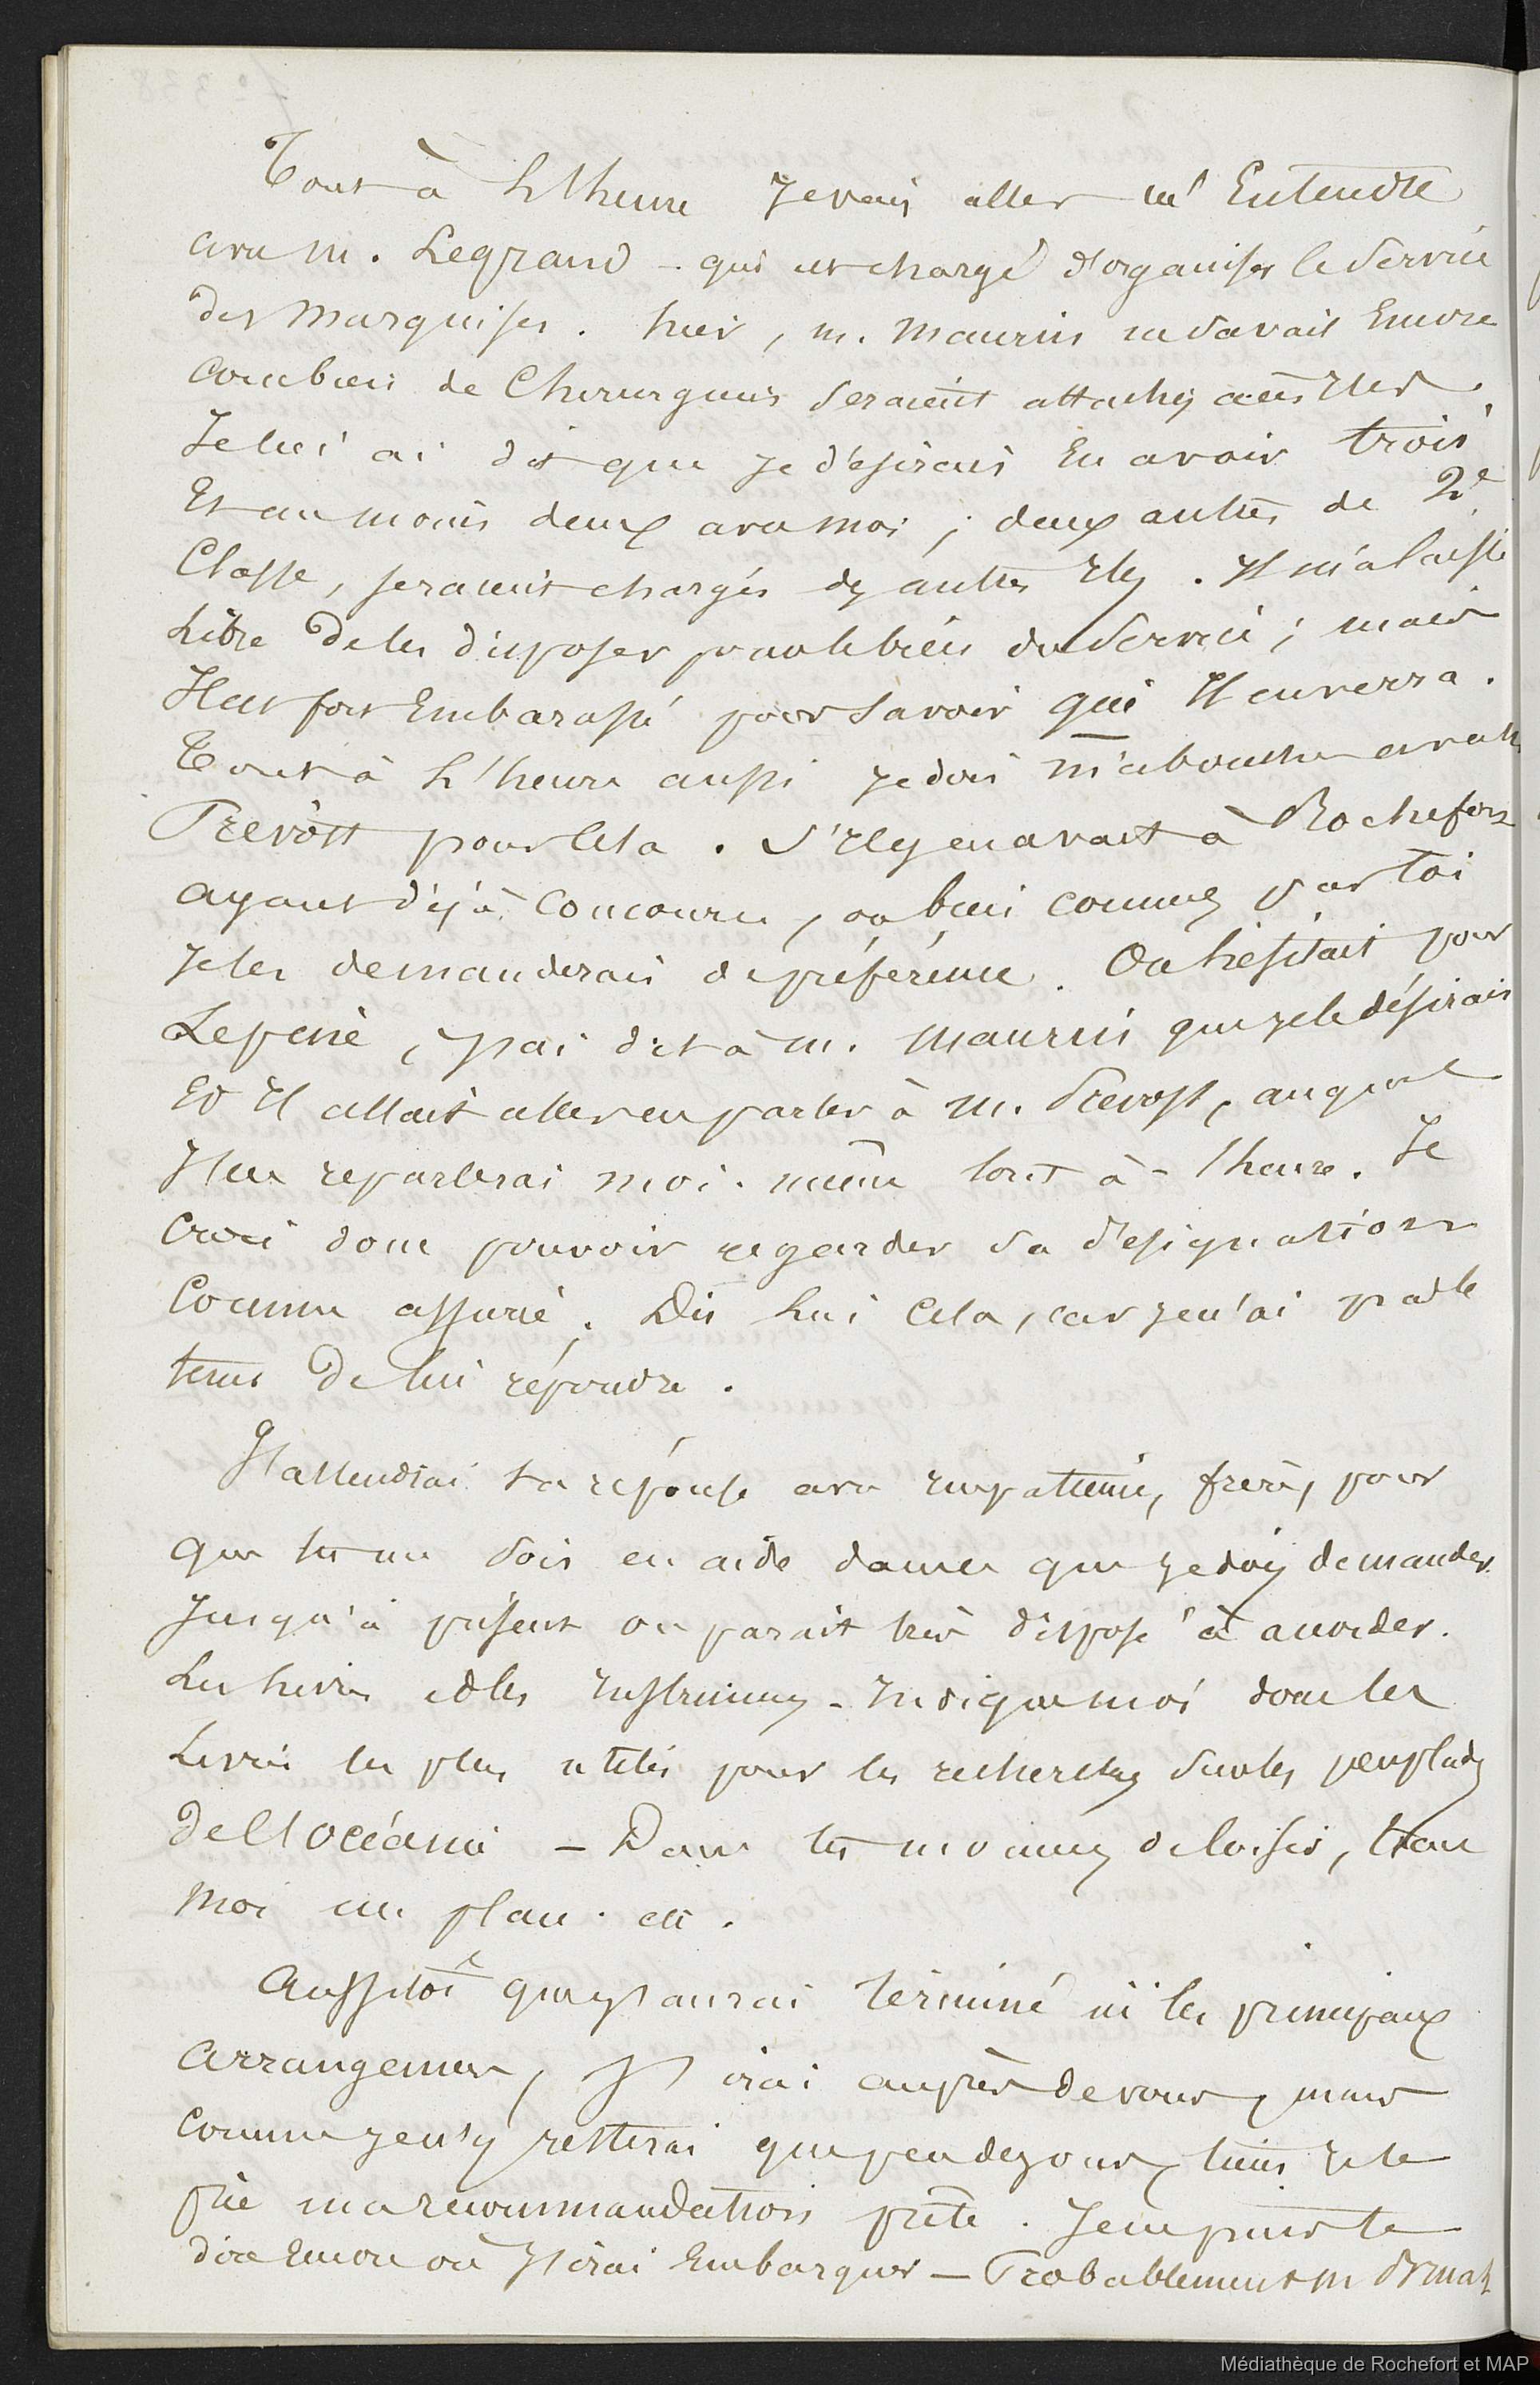 Tout à L'heure Je vais aller m'Entendre
avec M. Legrand - qui est chargé d'organiser le Service
des Marquises. hier, m. Maurin ne savait Encore
Combien de Chirurgiens Seraient attachés aux Iles.
Je lui ai dit que Je désirais En avoir trois
Et au moins deux avec moi ; deux autres de 2e
Classe, seraient chargés des autres Iles. Il m'a laissé
Libre De les disposer pour le bien du Service ; mais
Il est fort Embarassé pour Savoir qui Il enverra.
Tout à L'heure aussi Je dois m'aboucher avec M.
Prévost pour Cela. S'Il y en avait à Rochefort
ayant déjà Concouru, ou bien connus par toi
Je les demanderais de préférence. On hésitait pour
Lepene, J'ai dit à m. Maurin que Je le désirais
Et Il allait aller en parler à M. Prevost, auquel
J'en reparlerai moi-même tout à-l'heure. Je
Crois donc pouvoir regarder Sa désignation
Comme assurée. Dis Lui Cela, car Je n'ai pas le
tems De lui répondre.
J'attendrai ta réponse avec Impatience, frère, pour
que tu me sois en aide dans ce que Je dois demander.
Jusqu'à présent on parait très disposé à accorder.
Les livres et les Instrumens - Indique moi donc les
Livres les plus utiles pour les recherches Sur les peuplades
De L'océanie - Dans tes momens de loisir, trace
Moi un plan. etc.
Aussitôt que J'aurai terminé ici les principaux
arrangemens, J'irai auprès de vous, mais
Comme Je n'y resterai que peu de jours, tiens Je te
prie ma recommandation prête. Je ne puis te
dire Encore où J'irai Embarquer - Probablement
Médiathèque de Rochefort et MAP